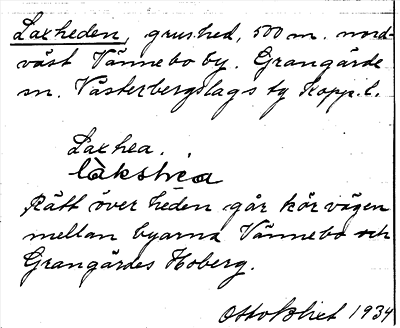 Laxheden, grushed, 500 m. nord-
väst Vännebo by. Grangärde
sn. Västerbergslags tg Kopp. l.
Laxhea.
làkshèa
Rätt över heden går körvägen
mellan byarna Vännebo och
Grangärdes Hoberg.
Otto Blixt 1934